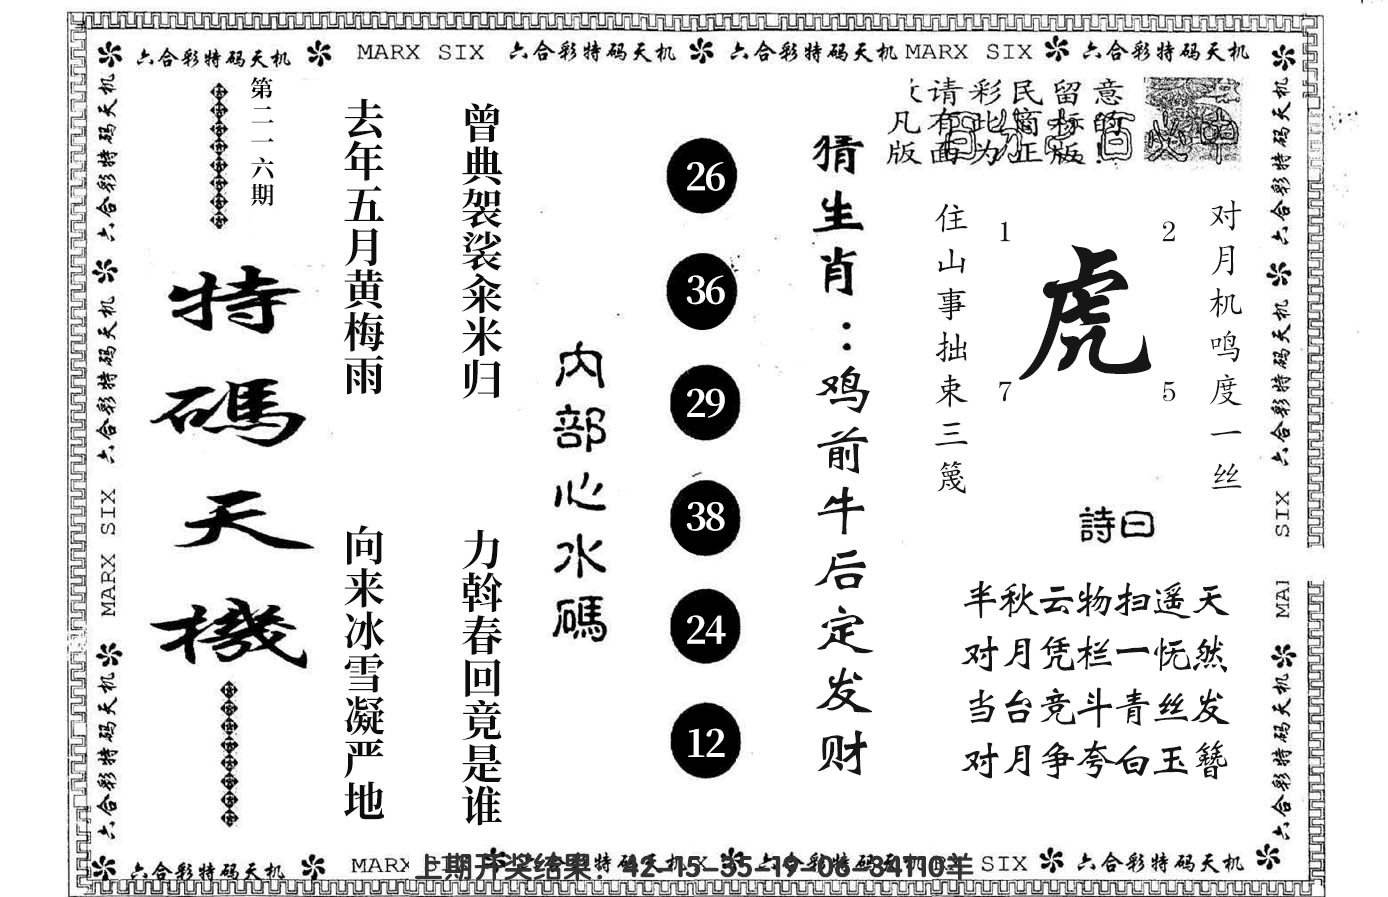 六合彩特码天机 MARX SIX 六合彩特码天机 六合彩特码天机 MARX SIX 六合彩特码天机
第二一一六期
特碼天機
去年五月黄梅雨
向来冰雪凝严地
曾典袈裟籴米归
力斡春回竟是谁
内部心水碼
26
36
29
38
24
12
猜生肖：鸡前牛后定发财
请彩民留意
凡有此商标的
版面为正版!
对月机鸣度一丝
住山事拙束三篾
虎
1
2
7
5
詩曰
半秋云物扫遥天
对月凭栏一怃然
当台竞斗青丝发
对月争夸白玉簪
六合彩特码天机
六合彩特码天机
MARX SIX
六合彩特码天机
六合彩特码天机
六合彩特码天机
SIX
六合彩特码天机
六合彩特码天机 MARX
上期开奖结果：42-15-35-19-06-34T10羊
SIX 六合彩特码天机